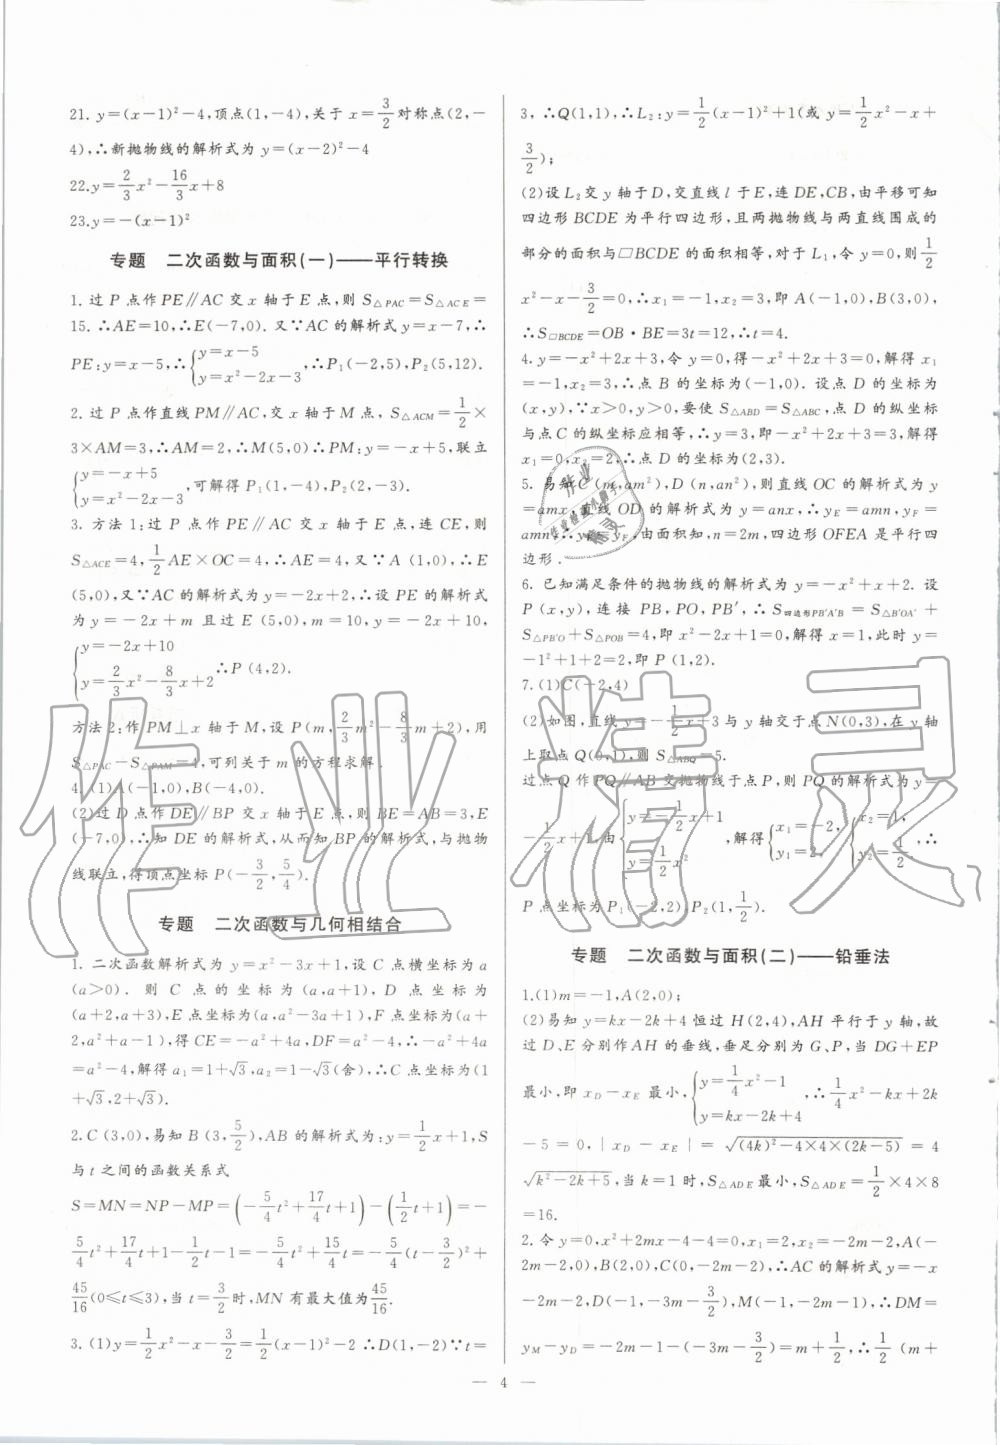 21. y=(x−1)²−4,顶点(1,−4),关于 x=3/2对称点(2,−
4),∴新抛物线的解析式为 y=(x−2)²−4
22.y=2/3x²−16/3x+8
23.y=−(x−1)²
专题 二次函数与面积(一)——平行转换
1. 过 P 点作 PE∥AC 交 x 轴于 E 点,则 S△PAC=S△ACE=
15. ∴AE=10,∴E(−7,0). 又∵AC 的解析式 y=x−7,∴
PE:y=x−5,∴{y=x−5 y=x²−2x−3 ,∴P₁(−2,5),P₂(5,12).
2. 过 P 点作直线 PM∥AC,交 x 轴于 M 点, S△ACM=1/2×
3×AM=3,∴AM=2,∴M(5,0)∴PM:y=−x+5,联立
{y=−x+5 y=x²−2x−3 ,可解得 P₁(1,−4),P₂(2,−3).
3. 方法 1:过 P 点作 PE∥AC 交 x 轴于 E 点,连 CE,则
S△ACE=4,1/2AE×OC=4,∴AE=4,又∵A (1,0),∴E
(5,0),又∵AC 的解析式为 y=−2x+2,∴设 PE 的解析式
为 y=−2x+m 且过 E (5,0),m=10,y=−2x+10,
{y=−2x+10 y=2/3x²−8/3x+2 ∴P (4,2).
方法 2:作 PM⊥x 轴于 M,设 P(m,2/3m²−8/3m+2),用
S△PAC−S△PAM=4,可列关于 m 的方程求解.
4. (1)A(−1,0),B(−4,0).
(2)过 D 点作 DE∥BP 交 x 轴于 E 点,则 BE=AB=3,E
(−7,0),∴知 DE 的解析式,从而知 BP 的解析式,与抛物
线联立,得顶点坐标 P(−3/2,5/4).
专题 二次函数与几何相结合
1. 二次函数解析式为 y=x²−3x+1,设 C 点横坐标为 a
(a>0). 则 C 点的坐标为 (a,a+1), D 点坐标为
(a+2,a+3),E 点坐标为(a,a²−3a+1),F 点坐标为(a+
2,a²+a−1),得 CE=−a²+4a,DF=a²−4,∴−a²+4a
=a²−4,解得 a₁=1+√3,a₂=1−√3(舍),∴C 点坐标为(1
+√3,2+√3).
2.C (3,0),易知 B (3,5/2),AB 的解析式为:y=1/2x+1,S
与 t 之间的函数关系式
S=MN=NP−MP=(−5/4t²+17/4t+1)−(1/2t+1)=−
5/4t²+17/4t+1−1/2t−1=−5/4t²+15/4t=−5/4(t−3/2)²+
45/16(0≤t≤3),当 t=3/2时,MN 有最大值为45/16.
3. (1)y=1/2x²−x−3/2=1/2(x−1)²−2 ∴D(1,−2)∵t=
3, ∴Q(1,1),∴L₂:y=1/2(x−1)²+1(或 y=1/2x²−x+
3/2);
(2)设 L₂交 y 轴于 D,交直线 l 于 E,连 DE,CB,由平移可知
四边形 BCDE 为平行四边形,且两抛物线与两直线围成的
部分的面积与□BCDE 的面积相等,对于 L₁,令 y=0,则1/2
x²−x−3/2=0,∴x₁=−1,x₂=3,即 A(−1,0),B(3,0),
∴S□BCDE=OB·BE=3t=12,∴t=4.
4. y=−x²+2x+3,令 y=0,得−x²+2x+3=0,解得 x₁
=−1,x₂=3,∴点 B 的坐标为(−1,0). 设点 D 的坐标为
(x,y),∵x>0,y>0,要使 S△ABD=S△ABC,点 D 的纵坐标
与点 C 的纵坐标应相等,∴y=3,即−x²+2x+3=3,解得
x₁=0,x₂=2,∴点 D 的坐标为(2,3).
5. 易知 C (m,am²),D (n,an²),则直线 OC 的解析式为 y
=amx,直线 OD 的解析式为 y=anx,∴yE=amn,yF=
amn,∴yE=yF,由面积知,n=2m,四边形 OFEA 是平行四边
形.
6. 已知满足条件的抛物线的解析式为 y=−x²+x+2. 设
P (x,y),连接 PB,PO,PB′, ∴ S四边形PB′A′B = S△B′OA′ +
S△PB′O+S△POB=4,即 x²−2x+1=0,解得 x=1,此时 y=
−1²+1+2=2,即 P (1,2).
7. (1)C(−2,4)
(2)如图,直线 y=−1/2x+3 与 y 轴交于点 N(0,3),在 y 轴
上取点 Q(0,1),则 S△ABQ=5.
过点 Q 作 PQ∥AB 交抛物线于点 P,则 PQ 的解析式为 y=
−1/2x+1,由{y=−1/2x+1 y=1/2x² ,解得{x₁=−2, y₁=2, {x₂=1, y₂=1/2, ∴
P 点坐标为 P₁(−2,2),P₂(1,1/2).
专题 二次函数与面积(二)——铅垂法
1.(1)m=−1,A(2,0);
(2)易知 y=kx−2k+4 恒过 H(2,4),AH 平行于 y 轴,故
过 D、E 分别作 AH 的垂线,垂足分别为 G、P,当 DG+EP
最小,即 xD−xE 最小,{y=1/4x²−1 y=kx−2k+4 ,∴1/4x²−kx+2k
−5=0,|xD−xE|=√(4k)²−4×4×(2k−5) = 4
√k²−2k+5,当 k=1 时,S△ADE最小,S△ADE=1/2×4×8
=16.
2. 令 y=0,x²+2mx−4−4=0,x₁=2,x₂=−2m−2,A(−
2m−2,0),B(2,0),C(0,−2m−2),∴AC 的解析式 y=−x
−2m−2,D(−1,−3m−3/2),M(−1,−2m−1),∴DM=
yM−yD=−2m−1−(−3m−3/2)=m+1/2,∴1/2 (m+
— 4 —
作业精灵